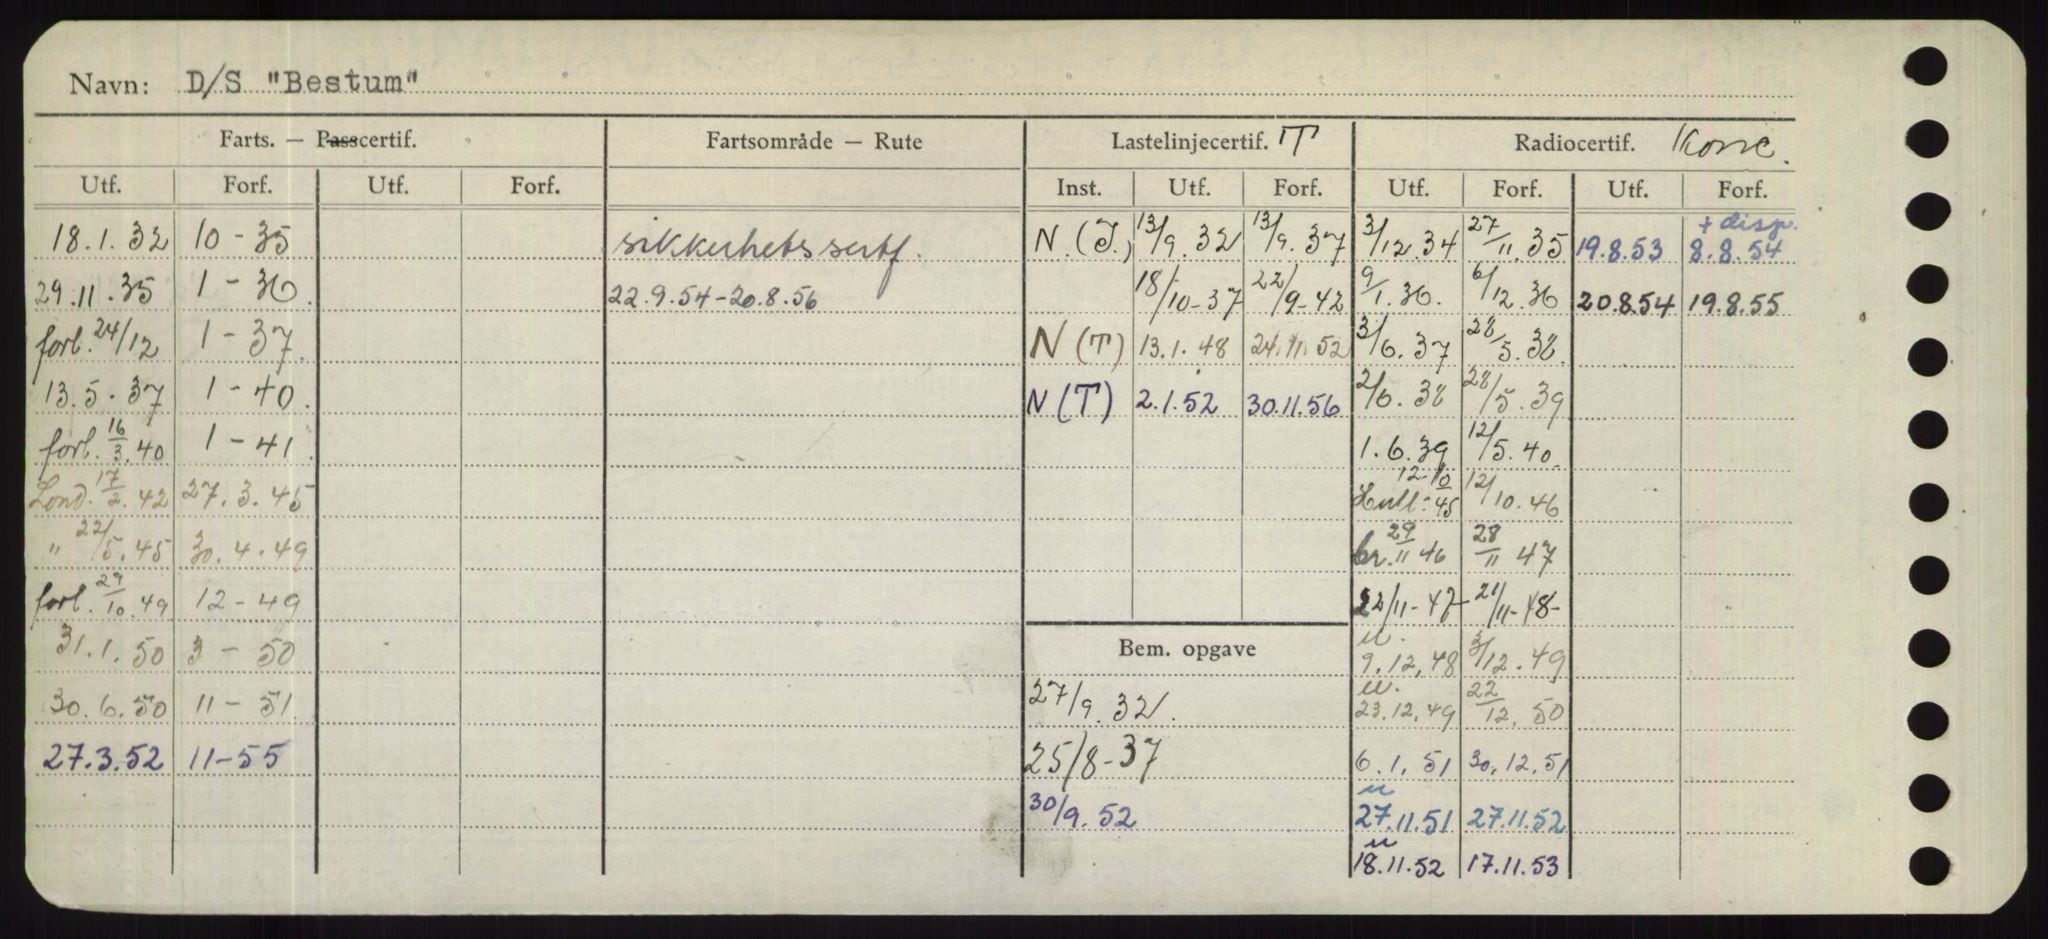 Navn: D/S "Bestum"
Farts. — Passcertif. Fartsområde — Rute Lastelinjecertif. T Radiocertif. Konv.
Utf. Forf. Utf. Forf. Inst. Utf. Forf. Utf. Forf. Utf. Forf.
18.1.32 10-35 sikkerhetssertf. N.(T.) 13/9.32 13/9.37 3/12.34 27/11.35 19.8.53 + disp. 8.8.54
29.11.35 1-36. 22.9.54-20.8.56 18/10-37 22/9-42 9/1.36. 6/12.36 20.8.54 19.8.55
forl. 24/12 1-37. N (T) 13.1.48 24.11.52 3/6.37 28/5.38.
13.5.37 1-40. N (T) 2.1.52 30.11.56 2/6.38 28/5.39
forl. 16/3.40 1-41. 1.6.39 12/5.40.
Lond. 17/2.42 27.3.45 Hull. 12.10/45 12/10.46
" 22/5.45 30.4.49 br. 29/11 46 28/11 47
forl. 29/10.49 12-49 22/11-47- 21/11-48-
31.1.50 3-50 Bem. opgave u. 9.12.48 3/12.49
30.6.50 11-51. 27/9.32. u. 23.12.49 22/12.50
27.3.52 11-55 25/8-37 6.1.51 30.12.51
30/9.52 u 27.11.51 27.11.52
u 18.11.52 17.11.53